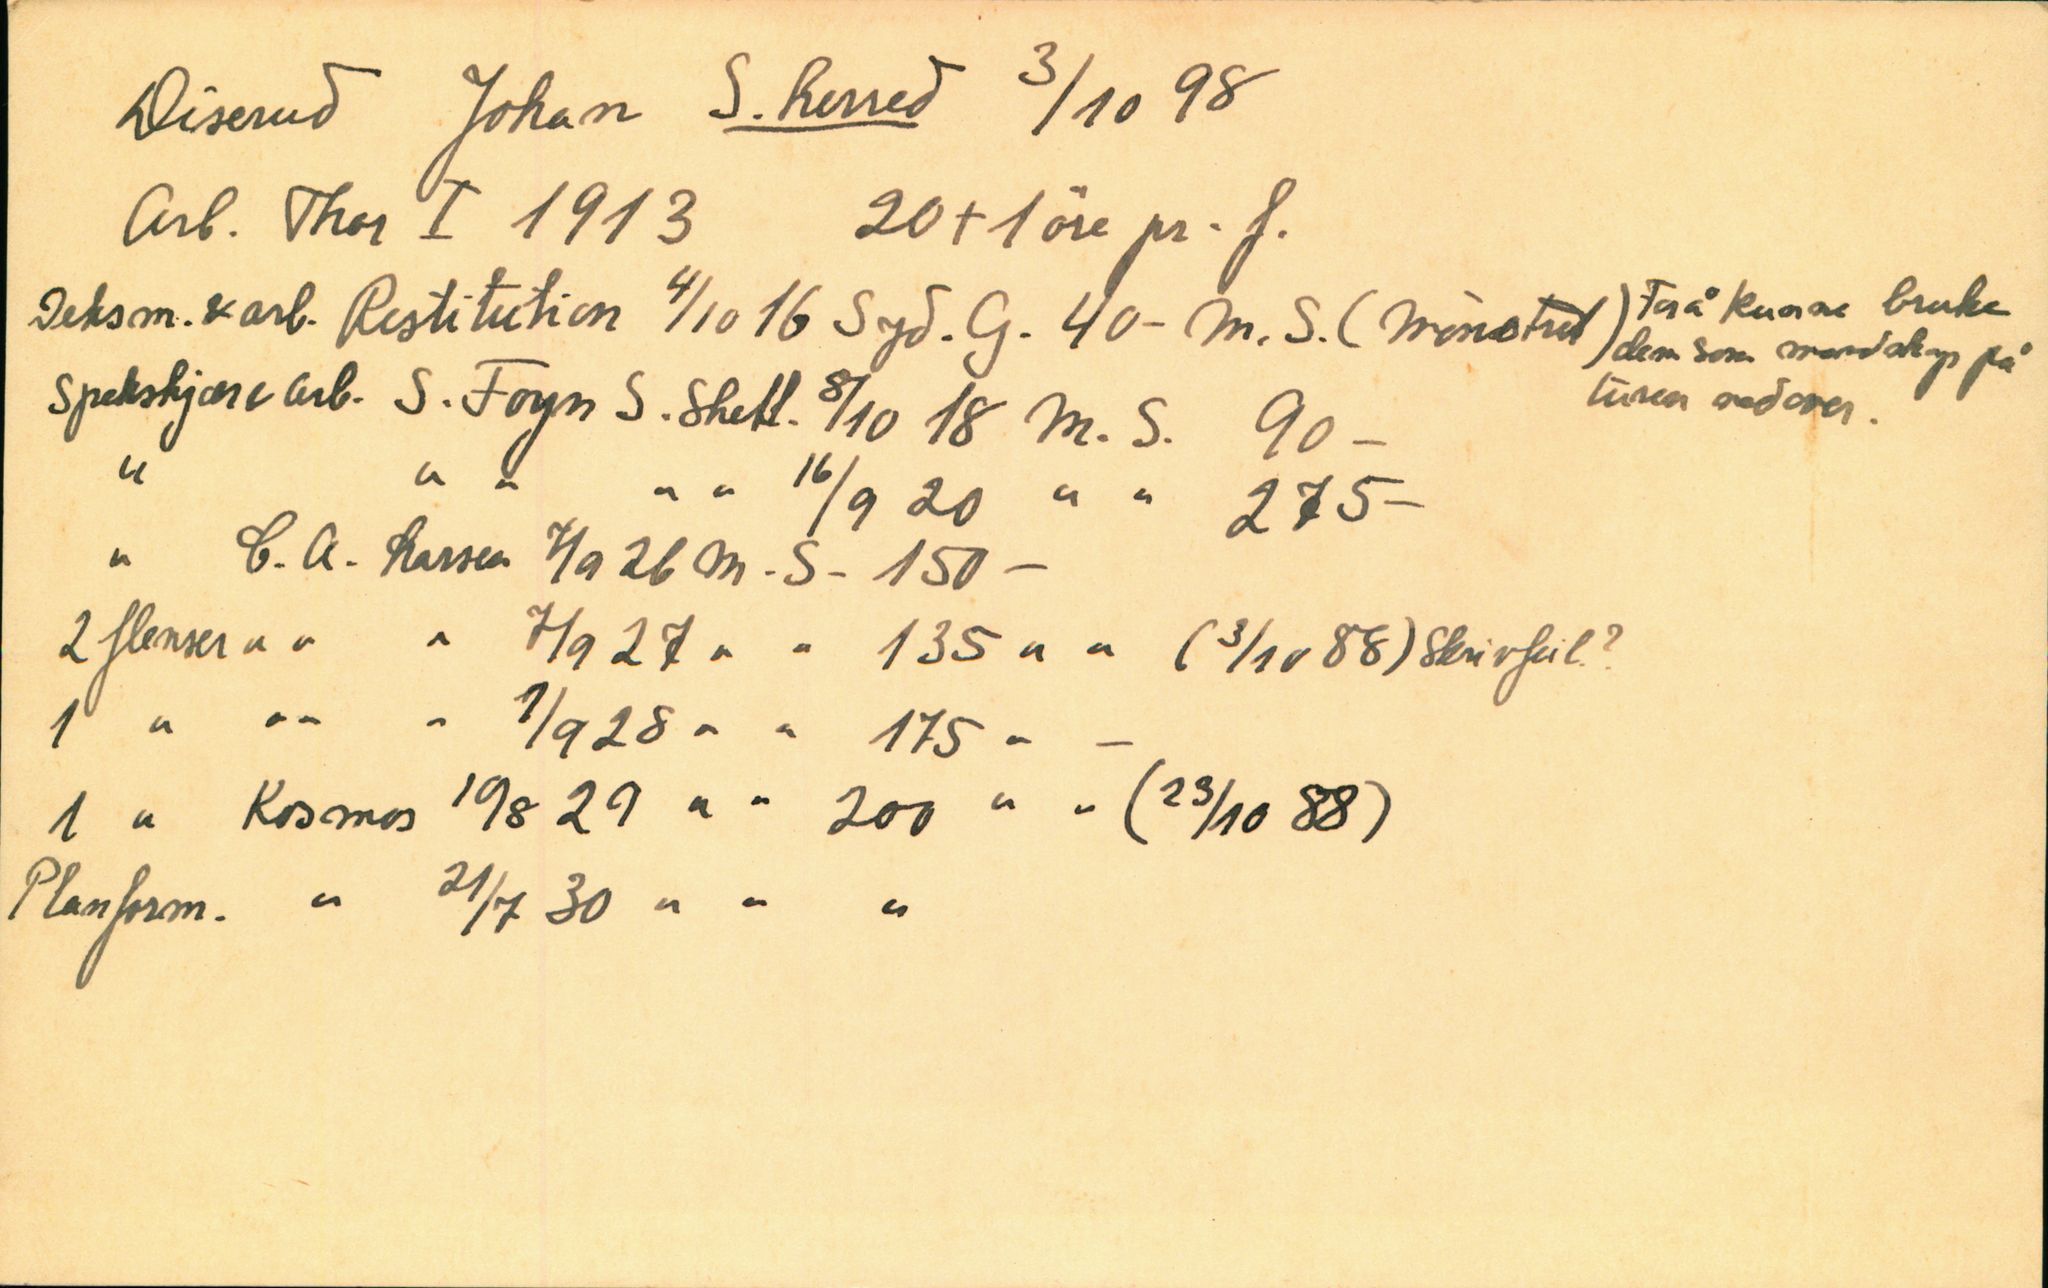 Diserud Johan S. herred 3/10 98
Arb. Thor I 1913 20+1 öre pr. f.
Deksm. & arb. Restitution 4/10 16 Syd. G. 40- M. S. (Mönstret) For å kunne bruke
dem som mandskap på
turen nedover.
Spekskjære arb. S. Foyn S. Shetl. 8/10 18 M. S. 90-
" " " " " 16/9 20 " " 275-
" C. A. Larsen 7/9 26 M. S. 150-
2 flenser " " " 7/9 27 " " 135 " " (3/10 88) Skrivfeil?
1 " " " " 1/9 28 " " 175 " -
1 " Kosmos 19/8 29 " " 200 " " (23/10 88)
Planform. " 21/7 30 " " "